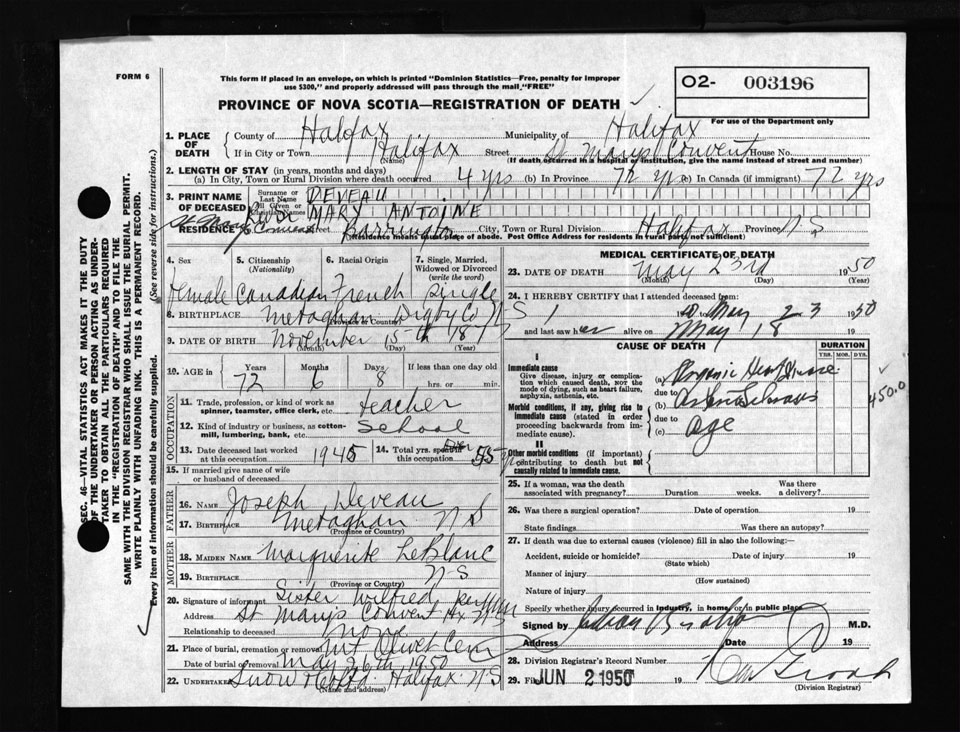 FORM 6
This form if placed in an envelope, on which is printed "Dominion Statistics—Free, penalty for improper
use $300," and properly addressed will pass through the mail "FREE"
O2- 003196
For use of the Department only
PROVINCE OF NOVA SCOTIA—REGISTRATION OF DEATH
1. PLACE OF DEATH
County of Halifax Municipality of Halifax
If in City or Town Halifax Street St Marys Convent House No.
(Name) (If death occurred in a hospital or institution, give the name instead of street and number)
2. LENGTH OF STAY (in years, months and days)
(a) In City, Town or Rural Division where death occurred 4 yrs (b) In Province 72 yrs (c) In Canada (if immigrant) 72 yrs
3. PRINT NAME OF DECEASED
Surname or Last Name DEVEAU
All Given or Christian Names MARY ANTOINE
RESIDENCE St Marys Convent Street Barrington City, Town or Rural Division Halifax Province N S
(Residence means usual place of abode. Post Office Address for residents in rural parts not sufficient)
4. Sex
5. Citizenship (Nationality)
6. Racial Origin
7. Single, Married, Widowed or Divorced (write the word)
Female Canadian French single
8. BIRTHPLACE Meteghan Digby Co N S
(Province or Country)
9. DATE OF BIRTH November 15th 1877
(Month) (Day) (Year)
10. AGE in Years Months Days If less than one day old
72 6 8 hrs. or min.
OCCUPATION
11. Trade, profession, or kind of work as spinner, teamster, office clerk, etc. teacher
12. Kind of industry or business, as cotton-mill, lumbering, bank, etc. School
13. Date deceased last worked at this occupation 1945
14. Total yrs. spent in this occupation 55
15. If married give name of wife or husband of deceased
FATHER
16. Name Joseph Deveau
17. Birthplace Meteghan N S
(Province or Country)
MOTHER
18. Maiden Name Marguerite LeBlanc
19. Birthplace N-S
(Province or Country)
20. Signature of informant Sister Wilfred
Address St Marys Convent Hx N-S
Relationship to deceased none
21. Place of burial, cremation or removal Mt Olivet Cem
Date of burial or removal May 26th 1950
22. Undertaker Snow & Co Ltd Halifax N-S
(Name and address)
MEDICAL CERTIFICATE OF DEATH
23. DATE OF DEATH May 23rd 1950
(Month) (Day) (Year)
24. I HEREBY CERTIFY that I attended deceased from
to May 23 1950
and last saw her alive on May 18 19
CAUSE OF DEATH DURATION
YRS. MOS. DYS.
I
Immediate cause
Give disease, injury or complication which caused death, NOT the mode of dying, such as heart failure, asphyxia, asthenia, etc.
(a) Organic Heart Disease
due to
Morbid conditions, if any, giving rise to immediate cause (stated in order proceeding backwards from immediate cause).
(b)
due to
(c) age
450.0
II
Other morbid conditions (if important) contributing to death but not causally related to immediate cause.
25. If a woman, was the death associated with pregnancy? Duration weeks. Was there a delivery?
26. Was there a surgical operation? Date of operation 19
State findings Was there an autopsy?
27. If death was due to external causes (violence) fill in also the following:—
Accident, suicide or homicide? Date of injury 19
(State which)
Manner of injury
(How sustained)
Nature of injury
Specify whether injury occurred in industry, in home, or in public place
Signed by M.D.
Address Date 19
28. Division Registrar's Record Number
29. Filed JUN 2 1950 19
(Division Registrar)
SEC. 46—VITAL STATISTICS ACT MAKES IT THE DUTY
OF THE UNDERTAKER OR PERSON ACTING AS UNDER-
TAKER TO OBTAIN ALL THE PARTICULARS REQUIRED
IN THE "REGISTRATION OF DEATH" AND TO FILE THE
SAME WITH THE DIVISION REGISTRAR WHO SHALL ISSUE THE BURIAL PERMIT.
WRITE PLAINLY WITH UNFADING INK. THIS IS A PERMANENT RECORD.
Every item of information should be carefully supplied. (See reverse side for instructions.)